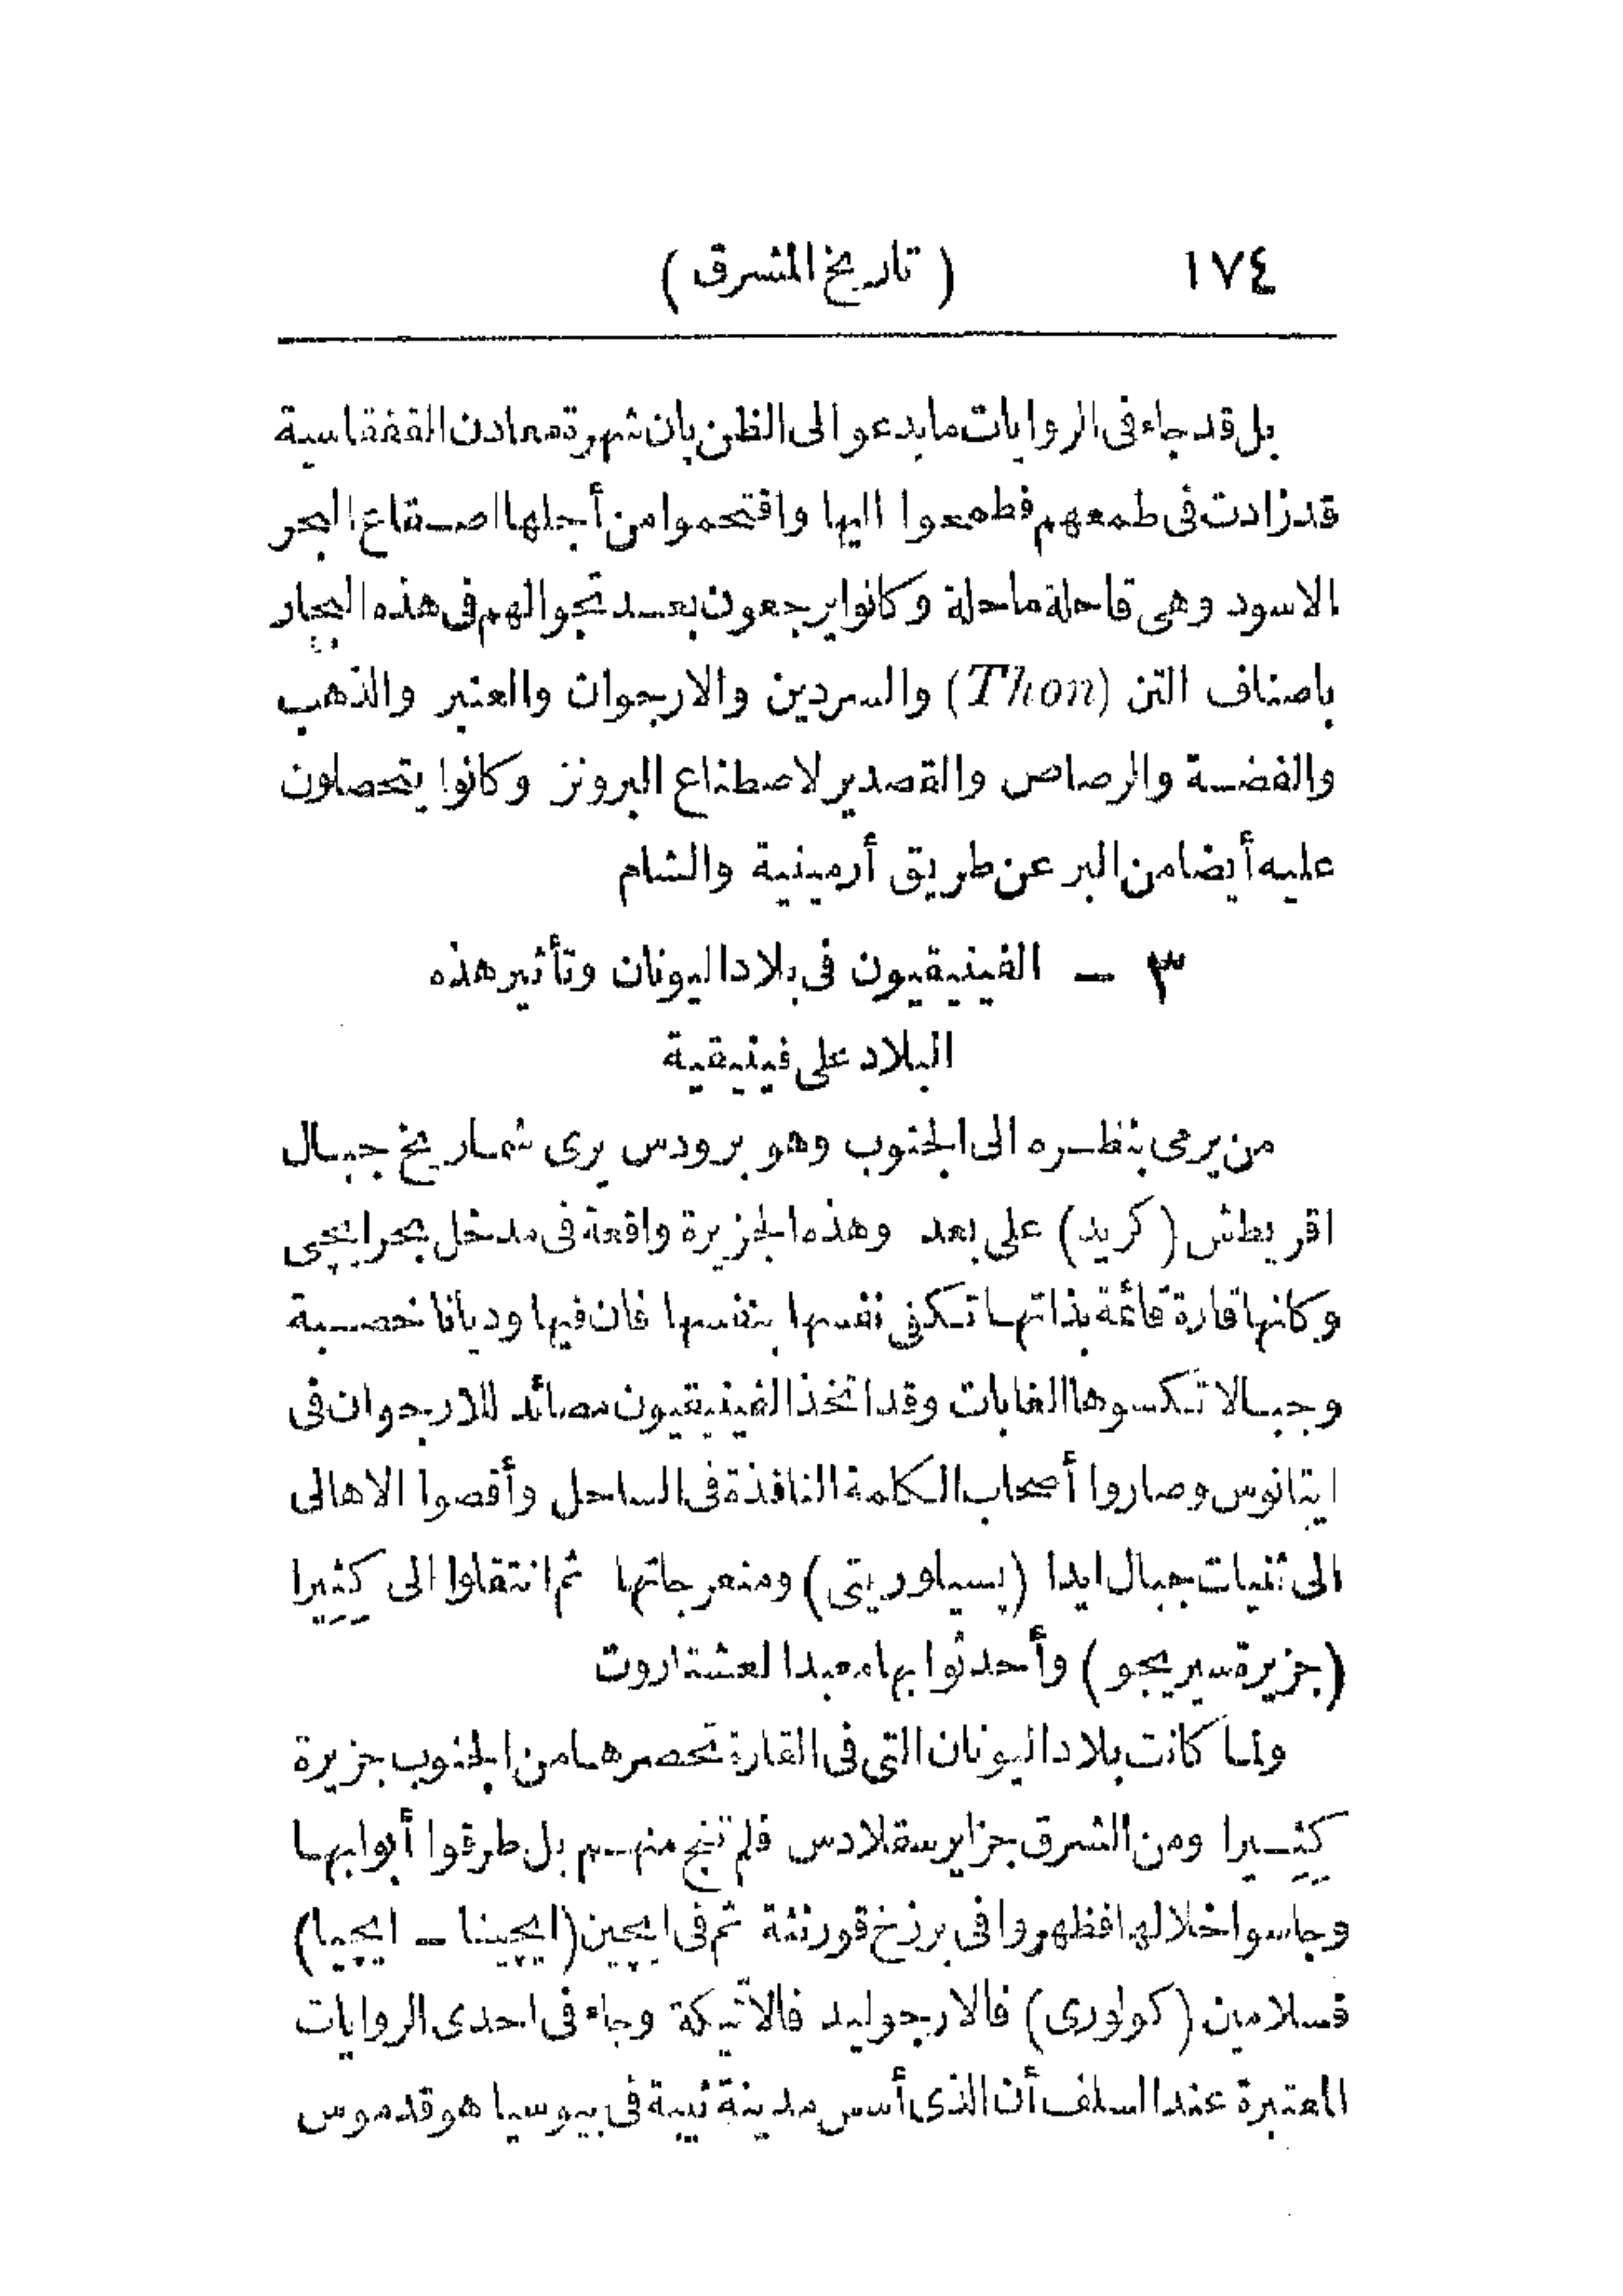 ١٧٤ ( تاريخ المشرق )
بل قد جاء فى الروايات ما يدعو الى الظن بان شهرة معادن القفقاسية
قد زادت فى طمعهم فطمعوا اليها واقتحموا من أجلها اصقاع البحر
الاسود وهى قاحلة ماحلة وكانوا يرجعون بعد تجوالهم فى هذه البحار
باصناف التن (Thon) والسردين والارجوان والعنبر والذهب
والفضة والرصاص والقصدير لاصطناع البرونز وكانوا يتحصلون
عليه أيضا من البر عن طريق أرمينية والشام
٣ – الفينيقيون فى بلاد اليونان وتأثير هذه
البلاد على فينيقية
من يرمى بنظره الى الجنوب وهو برودس يرى شماريخ جبال
اقريطش (كريد) على بعد وهذه الجزيرة واقعة فى مدخل بحر ايچى
وكانها قارة قائمة بذاتها تكفى نفسها بنفسها فان فيها وديانا خصبة
وجبالا تكسوها الغابات وقد اتخذ الفينيقيون مصائد للارجوان فى
ايتانوس وصاروا أصحاب الكلمة النافذة فى الساحل وأقصوا الاهالى
الى ثنيات جبال ايدا (پسيلوريتى) ومنعرجاتها ثم انتقلوا الى كِثِيرا
(جزيرة سيريجو) وأحدثوا بها معبدا لعشتاروت
ولما كانت بلاد اليونان التى فى القارة تحصرها من الجنوب جزيرة
كِثِيرا ومن الشرق جزاير سقلادس فلم تنج منهم بل طرقوا أبوابها
وجاسوا خلالها فظهروا فى برزخ قورنثة ثم فى ايچين (ايچينا – ايچيا)
فسلامين (كولورى) فالارجوليد فالاتيكة وجاء فى احدى الروايات
المعتبرة عند السلف أن الذى أسس مدينة ثيبة فى بيوسيا هو قدموس